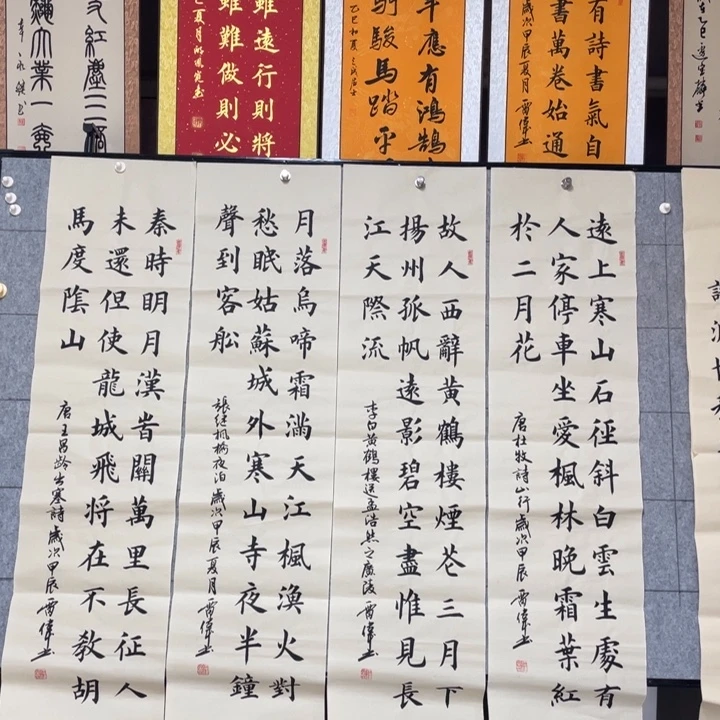 有詩書氣自
書萬卷始通
歲次甲辰夏月 雷偉書
應有鴻鵠
駿馬踏平
雖遠行則將
雖難做則必
紅塵
業一
遠上寒山石徑斜白雲生處有
人家停車坐愛楓林晚霜葉紅
於二月花
唐杜牧詩山行 歲次甲辰 雷偉書
故人西辭黃鶴樓煙花三月下
揚州孤帆遠影碧空盡惟見長
江天際流
李白黃鶴樓送孟浩然之廣陵 雷偉書
月落烏啼霜滿天江楓漁火對
愁眠姑蘇城外寒山寺夜半鐘
聲到客船
張繼楓橋夜泊 歲次甲辰夏月 雷偉書
秦時明月漢旹關萬里長征人
未還但使龍城飛将在不教胡
馬度陰山
唐王昌龄出塞詩 歲次甲辰 雷偉書